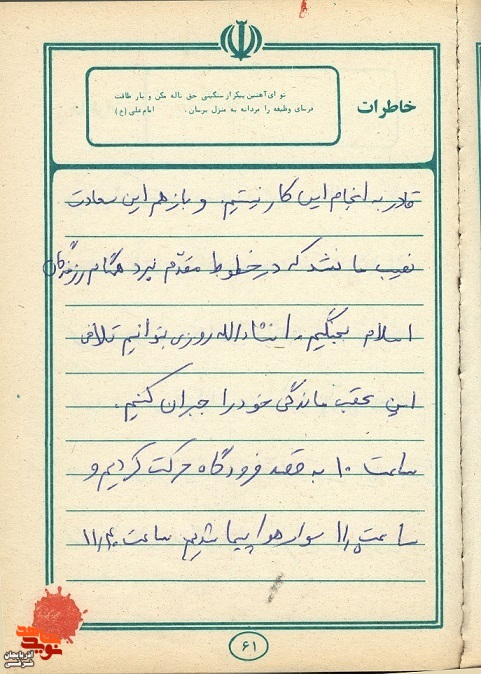 خاطرات
تو ای آهنین پیکر از سنگینی حق ناله مکن و بار طاقت
فرسای وظیفه را مردانه به منزل برسان. امام علی (ع)
قادر به انجام این کار نیستیم. و باز هم این سعادت
نصیب ما نشد که در خطوط مقدم نبرد همگام رزمندگان
اسلام بجنگیم. انشاءالله روزی بتوانیم تلافی
این عقب ماندگی خود را جبران کنیم.
ساعت ۱۰ به قصد فرودگاه حرکت کردیم و
ساعت سوار هواپیما شدیم ساعت ۱۱/۴۰
۶۱
نوید شاهد
آذربایجان
شرقی